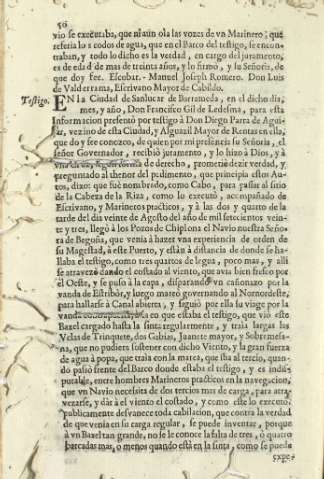 50
vio se executaba, que ni aun oìa las vozes de vn Marinero; que
referia los codos de agua, que en el Barco del testigo, se encon-
traban, y todo lo dicho es la verdad, en cargo del juramento,
es de edad de mas de treinta años, y lo firmò, y su Señoria, de
que doy fee. Escobar.- Manuel Joseph Romero. Don Luis
de Valderrama, Escrivano Mayor de Cabildo.
Testigo. EN la Ciudad de Sanlucar de Barrameda, en el dicho dia,
mes, y año, Don Francisco Gil de Ledesma, para esta
Informacion presentò por testigo à Don Diego Parra de Agui-
lar, vezino de esta Ciudad, y Alguazil Mayor de Rentas en ella,
que doy fee conozco, de quien por mi presencia su Señoria, el
señor Governador, recibiò juramento, y lo hizo à Dios, y à
de derecho, prometiò dezir verdad, y
preguntado al thenor del pedimento, que principia estos Au-
tos, dixo: que fuè nombrado, como Cabo, para passar al sitio
de la Cabeza de la Riza, como lo executò, acompañado de
Escrivano, y Marineros practicos, y à las dos y quarto de la
tarde del dia veinte de Agosto del año de mil setecientos vein-
te y tres, llegò à los Pozos de Chipiona el Navio nuestra Seño-
ra de Begoña, que venia à hazer vna experiencia de orden de
su Magestad, à este Puerto, y estàn à distancia de donde se ha-
llaba el testigo, como tres quartos de legua, poco mas, y alli
se atravezò dando el costado al viento, que avia bien fresco por
el Oeste, y se puso à la capa, disparando vn cañonazo por la
vanda de Estribòr, y luego mareò governando al Nornordeste,
para hallarse à Canal abierta, y siguiò por ella su viage por la
vanda en que estaba el testigo, que viò este
Baxel cargado hasta la sinta regularmente, y traia largas las
Velas de Trinquete, dos Gabias, Juanete mayor, y Sobremesa-
na, que no pudiera sostener con dicho Viento, y la gran fuerza
de agua à popa, que traia con la marea, que iba al tercio, quan-
do passò frente del Barco donde estaba el testigo, y es indis-
putable, entre hombres Marineros practicos en la navegacion,
que vn Navio necesita de dos tercios mas de carga, para atra-
vezarse, y dàr à el viento el costado, y como este lo executò,
publicamente desvanece toda cabilacion, que contra la verdad
de que venia en su carga regular, se puede inventar, porque
à vn Baxel tan grande, no se le conoce la falta de tres, ò quatro
barcadas mas, ò menos quando està en la sinta, como se puede
expe-